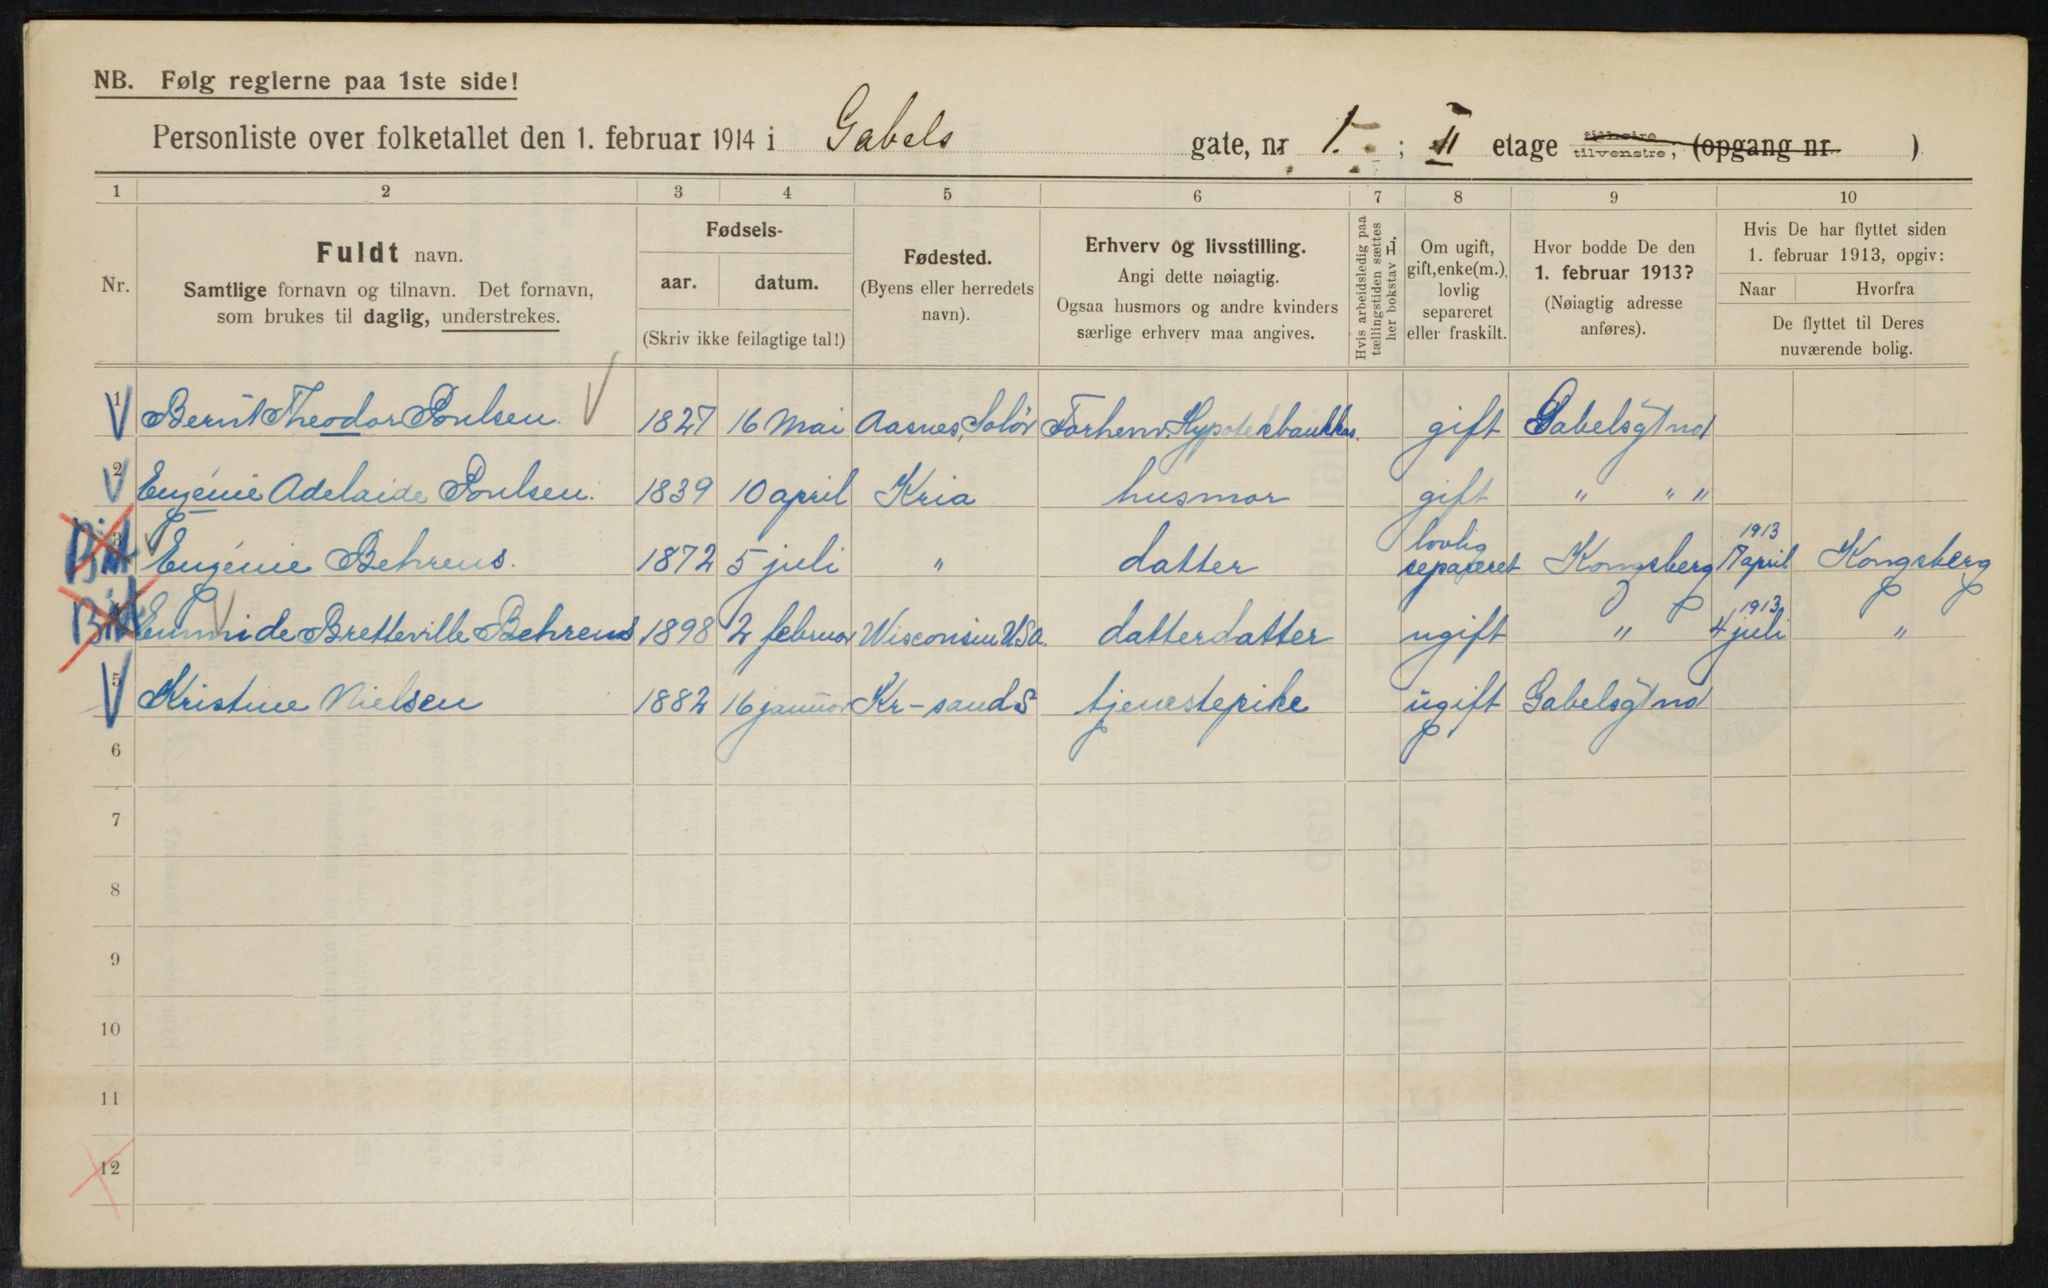 NB. Følg reglerne paa 1ste side!
Personliste over folketallet den 1. februar 1914 i Gabels gate, nr 1. ; II etage tilhøire tilvenstre, (opgang nr )
1 2 3 4 5 6 7 8 9 10
Nr.
Fuldt navn.
Samtlige fornavn og tilnavn. Det fornavn,
som brukes til daglig, understrekes.
Fødsels-
aar. datum.
(Skriv ikke feilagtige tal!)
Fødested.
(Byens eller herredets
navn).
Erhverv og livsstilling.
Angi dette nøiagtig.
Ogsaa husmors og andre kvinders
særlige erhverv maa angives.
Hvis arbeidsledig paa
tællingstiden sættes
her bokstav L.
Om ugift,
gift, enke(m.),
lovlig
separeret
eller fraskilt.
Hvor bodde De den
1. februar 1913?
(Nøiagtig adresse
anføres).
Hvis De har flyttet siden
1. februar 1913, opgiv:
Naar Hvorfra
De flyttet til Deres
nuværende bolig.
1 Bernt Theodor Poulsen. 1827 16 Mai Aasnes, Solör Forhenv. Hypotekbankkas. gift Gabelsgt no 1
2 Eugénie Adelaide Poulsen. 1839 10 april Kria husmor gift " " "
3 Eugénie Behrens. 1872 5 juli " datter lovlig separeret Kongsberg 1913 17 april Kongsberg
4 Emmi de Bretteville Behrens 1898 2 februar Wisconsin USA. datterdatter ugift " 1913 4 juli "
5 Kristine Nielsen 1882 16 januar Kr-sand S tjenestepike ugift Gabelsgt no 1
6
7
8
9
10
11
12